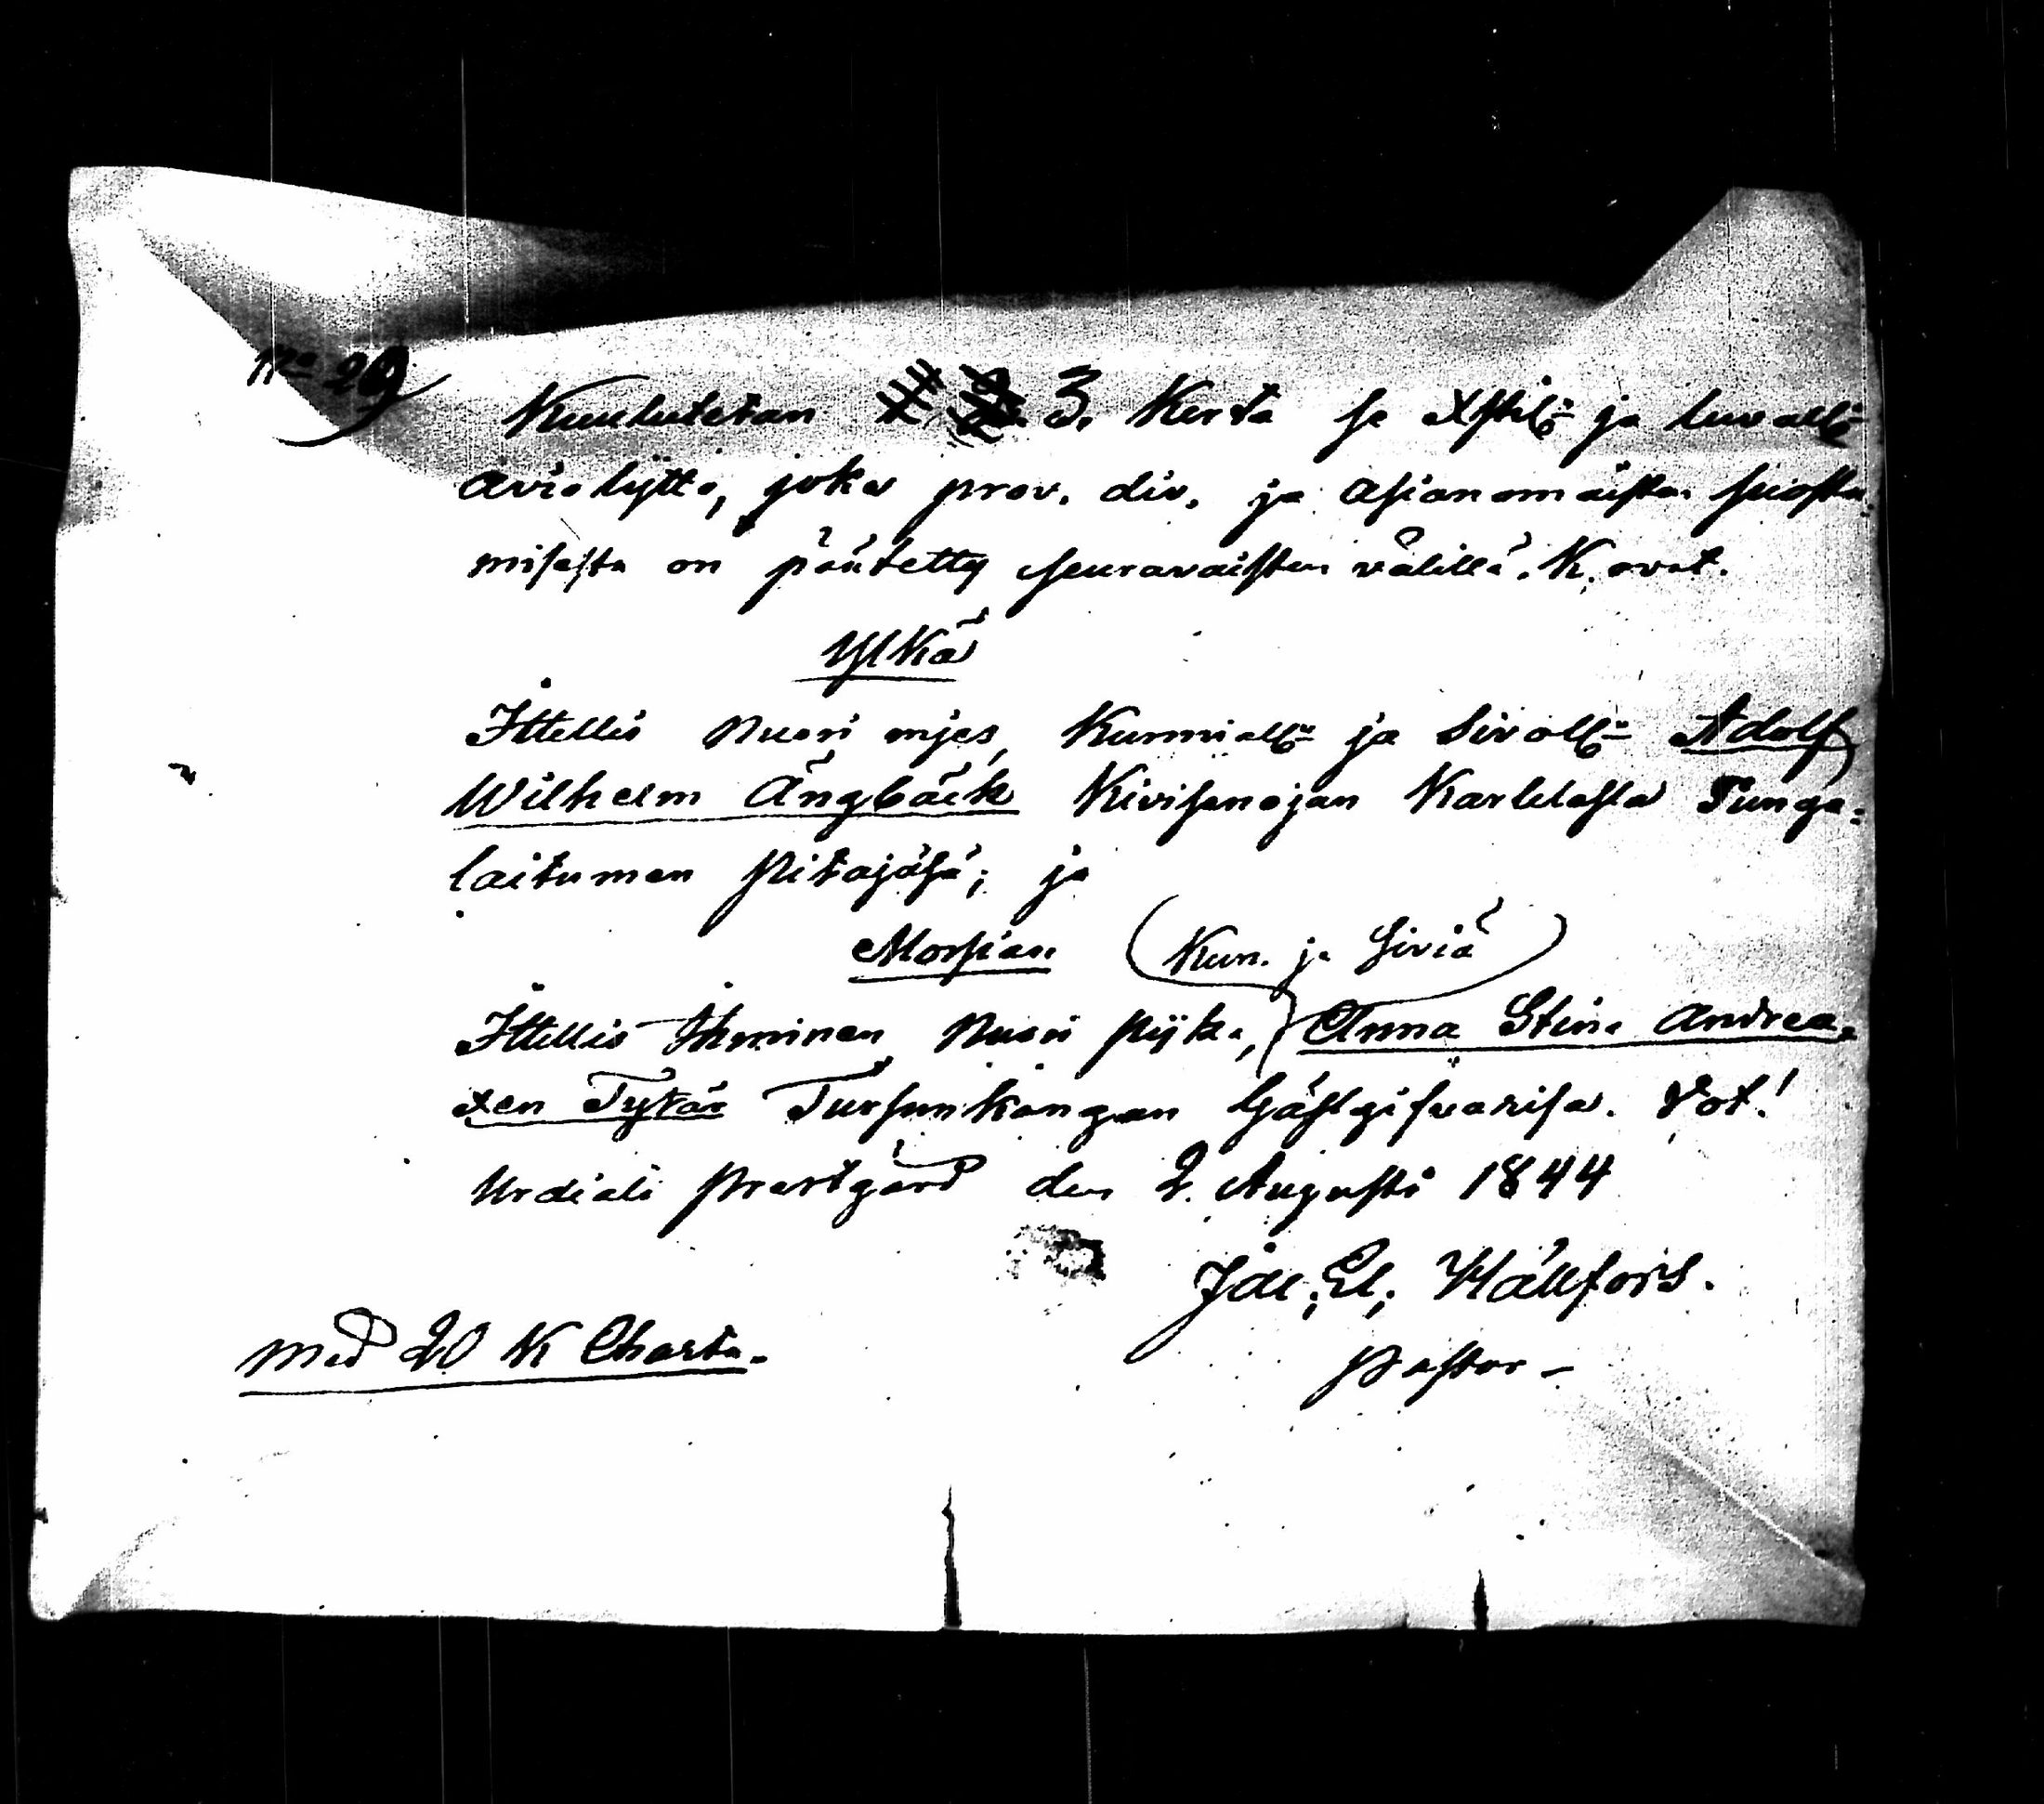 No 29
Kuulutetan 3. Kerta se Xstil. ja luvall.
avioliitto, joka prov. div. ja asianomaisten suostu-
misesta on päätetty seuravaisten välillä. K. ovat.
Ylkä
Ittellis Nuori mjes, Kunniall. ja Siväll. Adolf
Wilhelm Ängbäck Kivisenojan Karlelasta Punga-
laitumen Pitäjäsä; ja
Morsian (Kun. ja Siviä)
Ittellis Ihminen Nuori Pijka, Anna Stina Andrea-
xen Tytär Tursunkangan Gästgifvarisa. Vot!
Urdiala Prestgård den 2. Augusti 1844
Jac. El. Hällfors.
Pastor
med 20 K Charta.